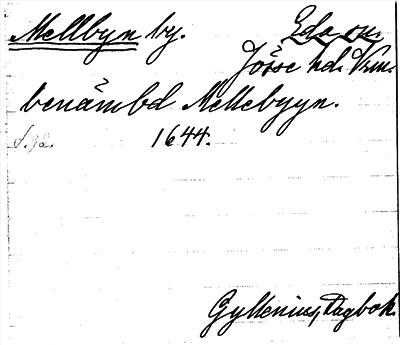 Mellbyn by. Eda sn.
Jösse hd. Vrm.
benämbd Mellebyyn.
S. 92. 1644.
Gyllenius, Dagbok.